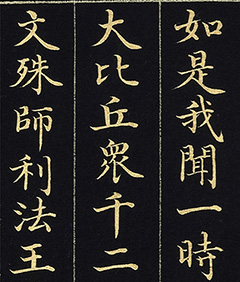 如是我聞一時
大比丘衆千二
文殊師利法王